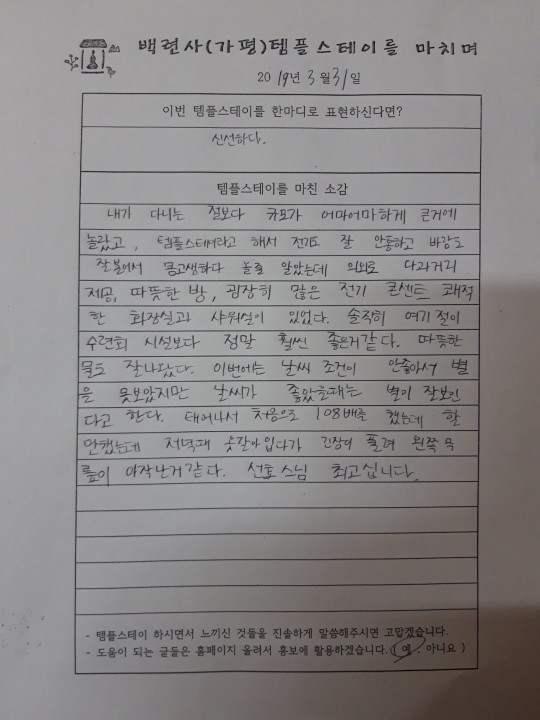 백련사(가평)템플스테이를 마치며
2019년 3월 31일
이번 템플스테이를 한마디로 표현하신다면?
신선하다.
템플스테이를 마친 소감
내가 다니는 절보다 규모가 어마어마하게 큰거에
놀랐고, 템플스테이라고 해서 전기도 잘 안통하고 바람도
잘불어서 몸고생하다 올줄 알았는데 의외로 다과거리
제공, 따뜻한 방, 굉장히 많은 전기 콘센트 쾌적
한 화장실과 샤워실이 있었다. 솔직히 여기 절이
수련회 시설보다 정말 훨씬 좋은거같다. 따뜻한
물도 잘나왔다. 이번에는 날씨 조건이 안좋아서 별
을 못보았지만 날씨가 좋았을때는 별이 잘보인
다고 한다. 태어나서 처음으로 108배를 했는데 할
만했는데 저녁때 옷갈아입다가 긴장이 풀려 왼쪽 무
릎이 아작난거같다. 선효스님 최고십니다.
- 템플스테이 하시면서 느끼신 것들을 진솔하게 말씀해주시면 고맙겠습니다.
- 도움이 되는 글들은 홈페이지 올려서 홍보에 활용하겠습니다.(예, 아니요)